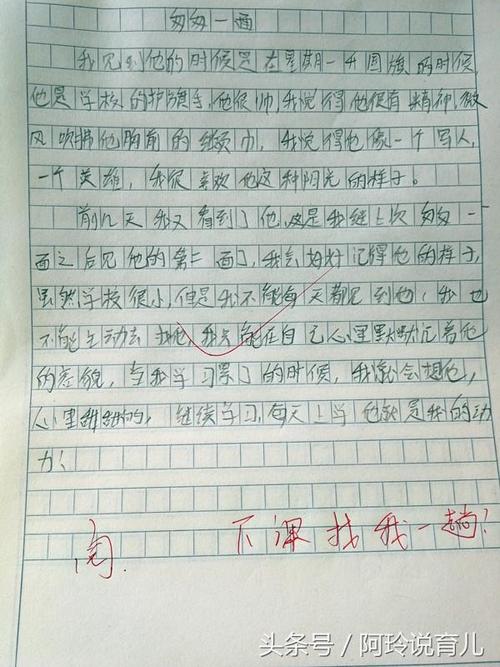 匆匆一面
我见到他的时候是在星期一升国旗的时候,
他是学校的护旗手,他很帅,我觉得他很有精神,微
风吹拂他胸前的红领巾,我觉得他像一个军人,
一个英雄,我很喜欢他这种阳光的样子。
前几天我又看到了他,这是我继上次匆匆一
面之后见他的第二面了,我会好好记得他的样子,
虽然学校很小,但是我不能每天都见到他,我也
不能主动去找他,我只能在自己心里默默记着他
的容貌,当我学习累了的时候,我就会想他,
心里甜甜的,继续学习,每天上学他就是我的动
力!
阅. 下课找我一趟!
头条号/阿玲说育儿